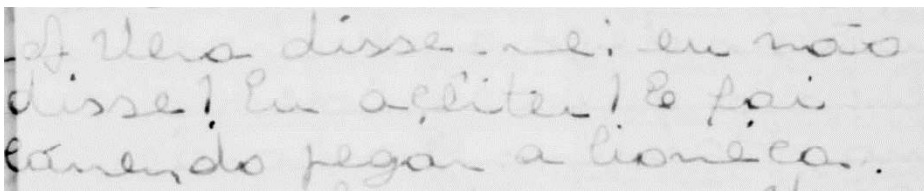 A Vera disse-me: eu não
disse! Eu aceitei! E foi
correndo pegar a boneca.